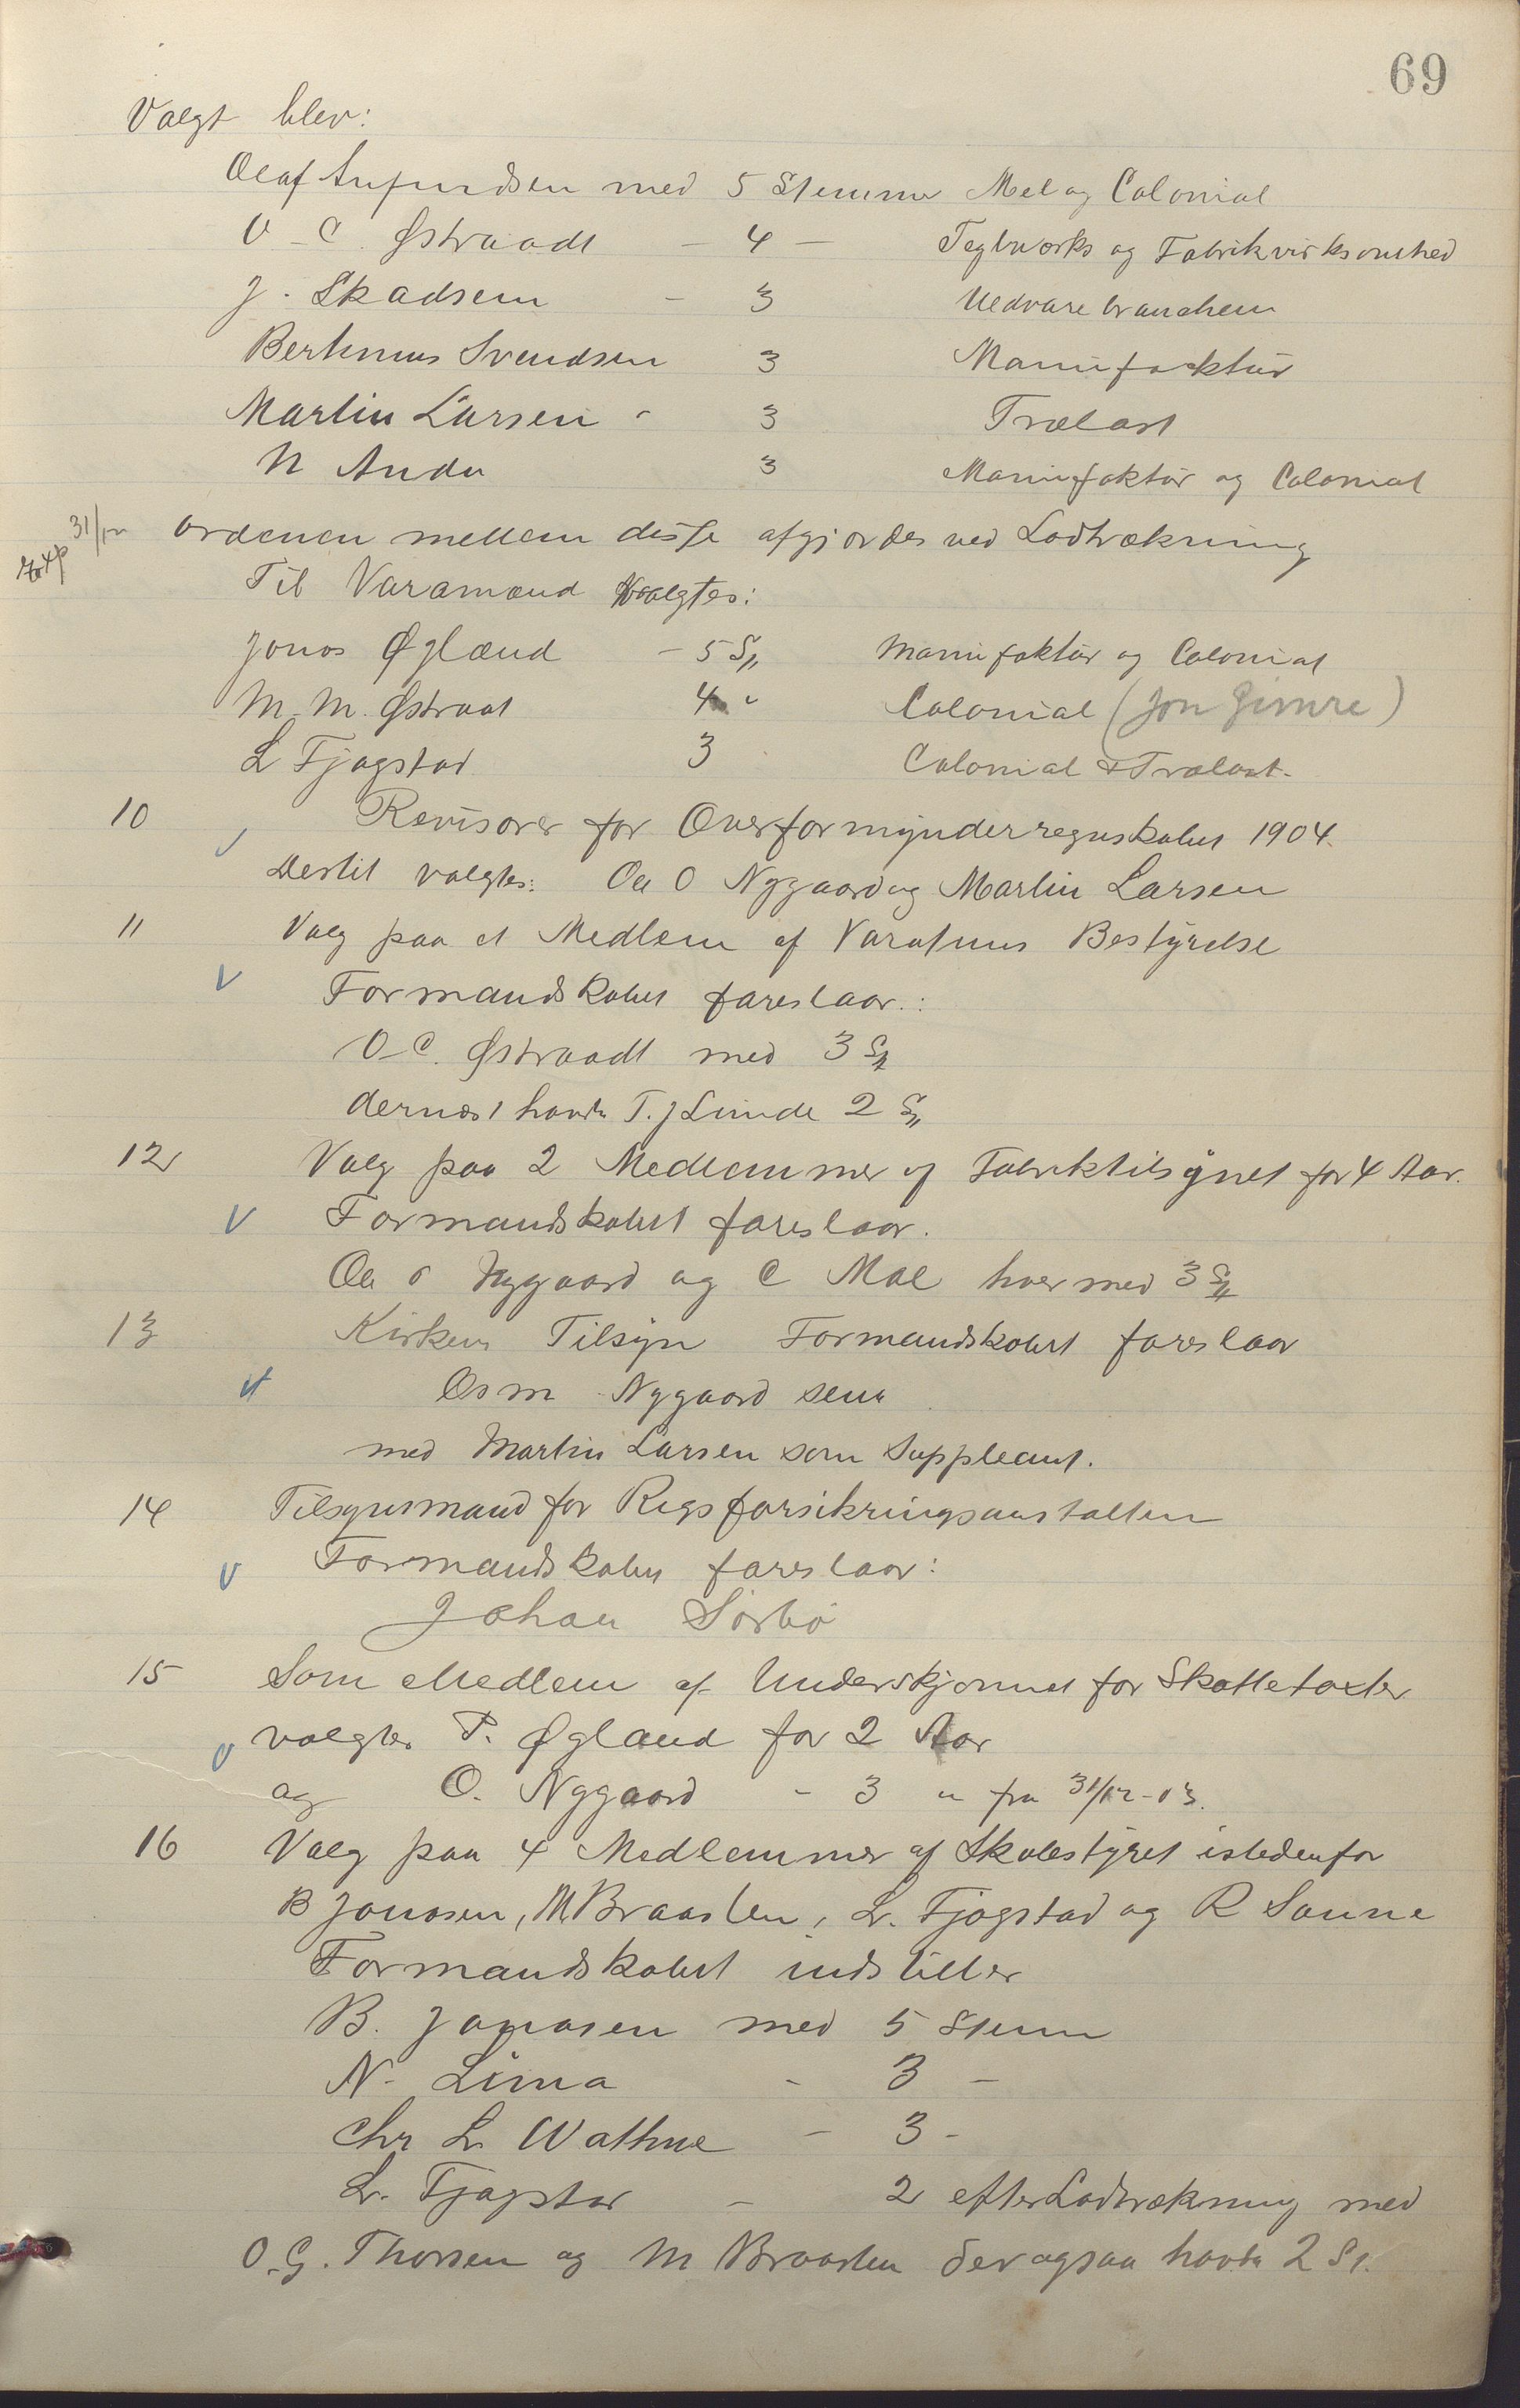 69
Valgt blev:
Olaf Anfindsen med 5 Stemmer Mel og Colonial
O. C. Østraadt – 4 – Teglværks og Fabrikvirksomhed
J. Skadsem – 3 Uldvarebranchen
Bertinius Svendsen 3 Manufaktur
Martin Larsen - 3 Trælast
N Anda 3 Manufaktur og Colonial
31/12 ordenen mellem disse afgjordes ved Lodtrækning
Exp
Til Varamænd valgtes:
Jonas Øglænd – 5 St. Manufaktur og Colonial
M. M. Østraat 4 " Colonial (Jon Gimre)
L Fjogstad 3 Colonial & Trælast.
10 Revisorer for Overformynderregnskabet 1904.
Dertil valgtes: Ola O Nygaard og Martin Larsen
11 Valg paa et Medlem af Varafuns Bestyrelse
V Formandskabet foreslaar:
O. C. Østraadt med 3 St.
dernæst havde T. J Lunde 2 St.
12 Valg paa 2 Medlemmer af Fabriktilsynet for 4 Aar.
V Formandskabet foreslaar.
Ola O Nygaard og C Mæle hver med 3 St.
13 Kirkens Tilsyn Formandskabet foreslaar
Osm Nygaard senr
med Martin Larsen som Suppleant.
14 Tilsynsmand for Rigsforsikringsanstalten
V Formandskabet foreslaar:
Johan Sørbø
15 Som Medlem af Underskjønnet for Skattetaxter
V valgtes P. Øgland for 2 Aar
og O. Nygaard - 3 " fra 31/12-03.
16 Valg paa 4 Medlemmer af Skolestyret istedenfor
B Jonasen, M. Braasten, L. Fjogstad og R Sanne
Formandskabet indstiller
B. Jonasen med 5 Stem
N. Lima - 3 –
Chr L. Wathne – 3 -
L. Fjogstad – 2 efter Lodtrækning med
O. G. Thorsen og M Braasten der ogsaa havde 2 St.